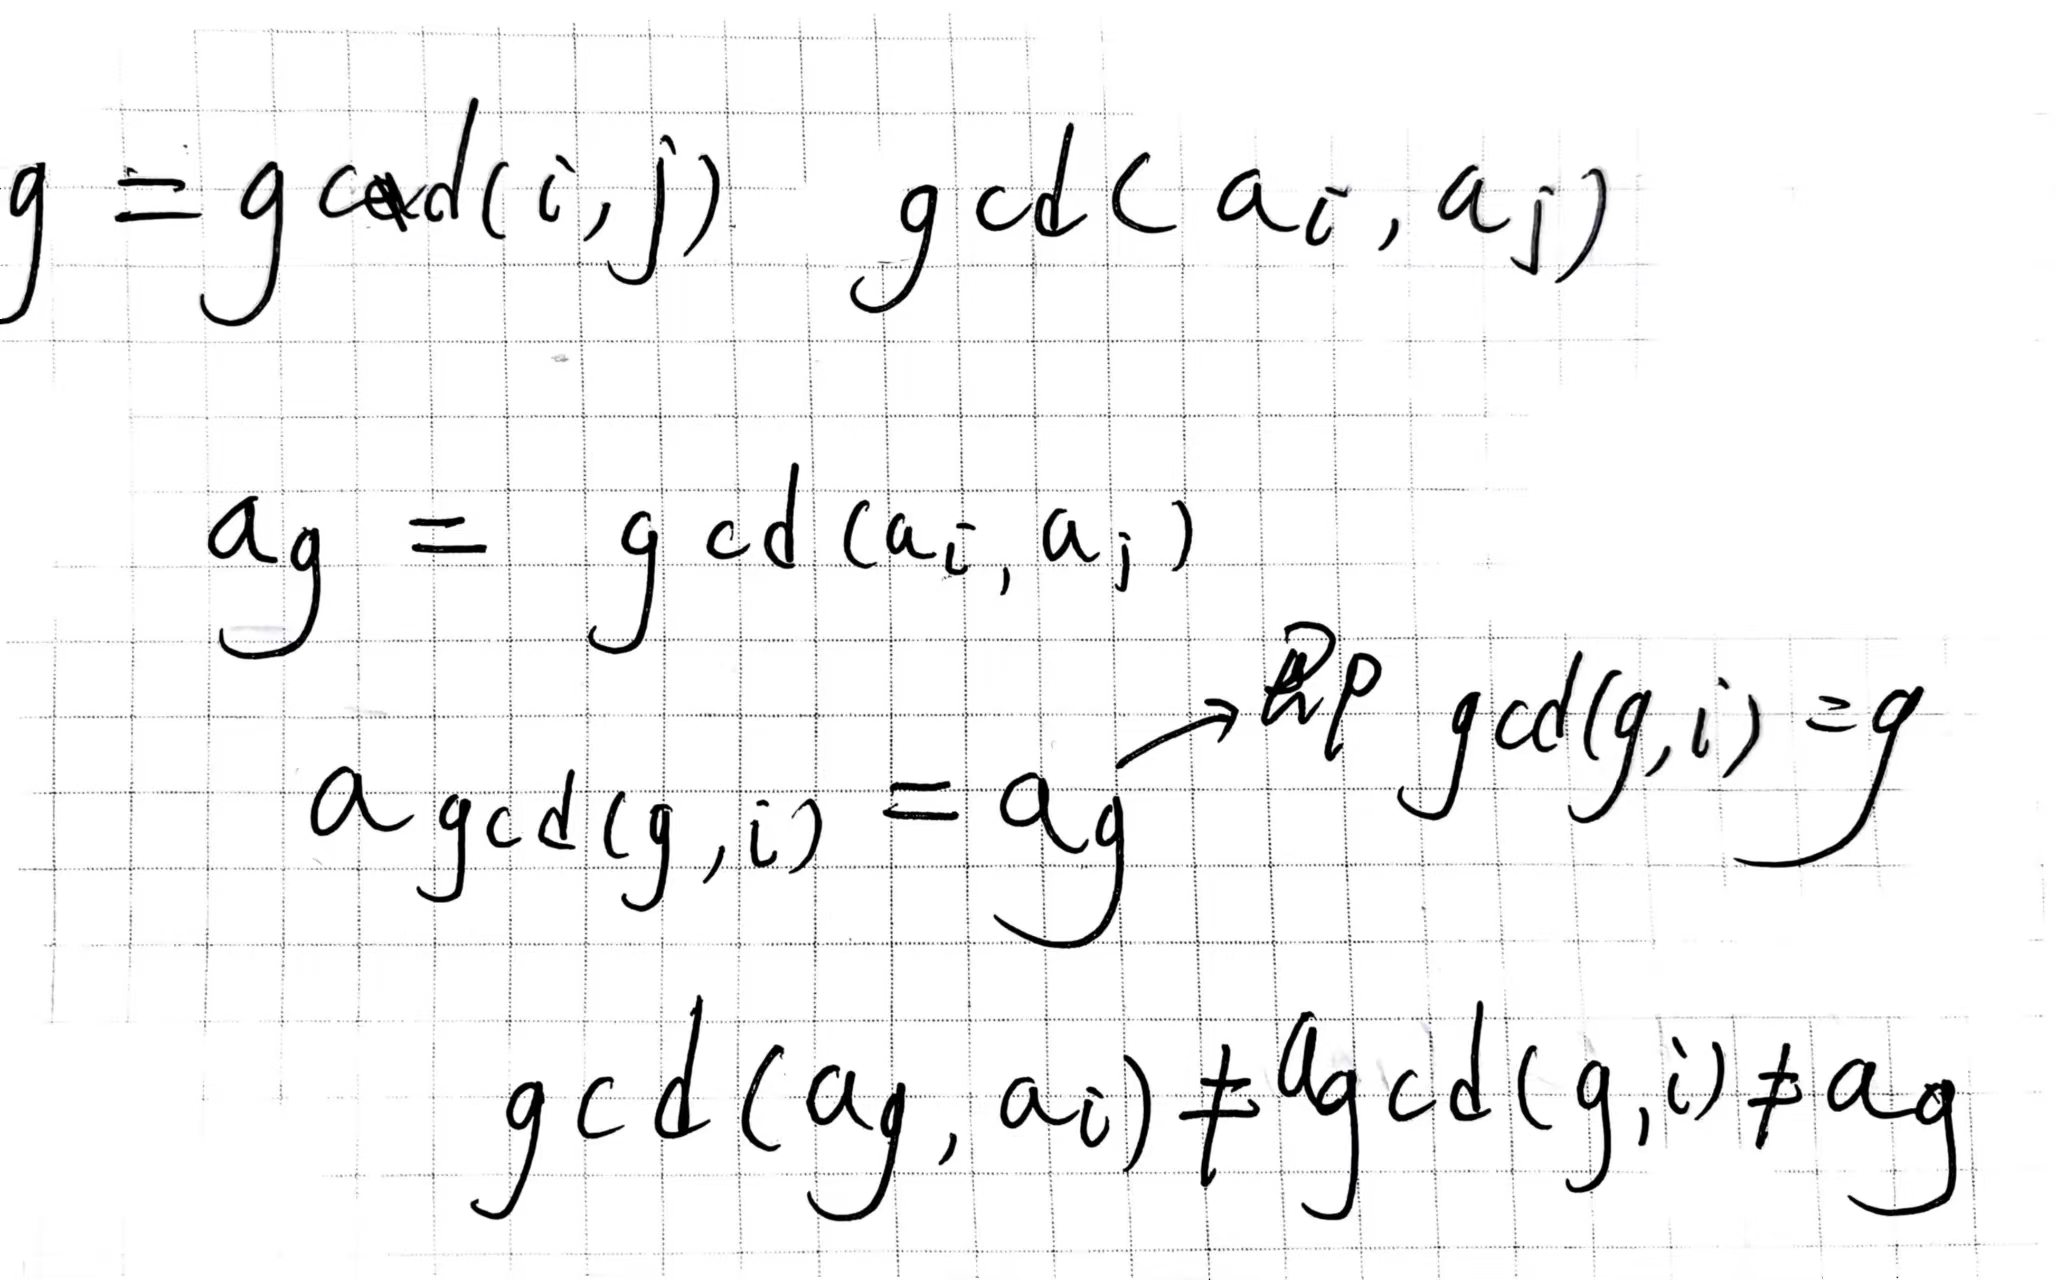 g = gcd(i,j) gcd(a_i, a_j)
a_g = gcd(a_i, a_j)
a_gcd(g,i) = a_g → 即 gcd(g,i) = g
gcd(a_g, a_i) ≠ a_gcd(g,i) ≠ a_g